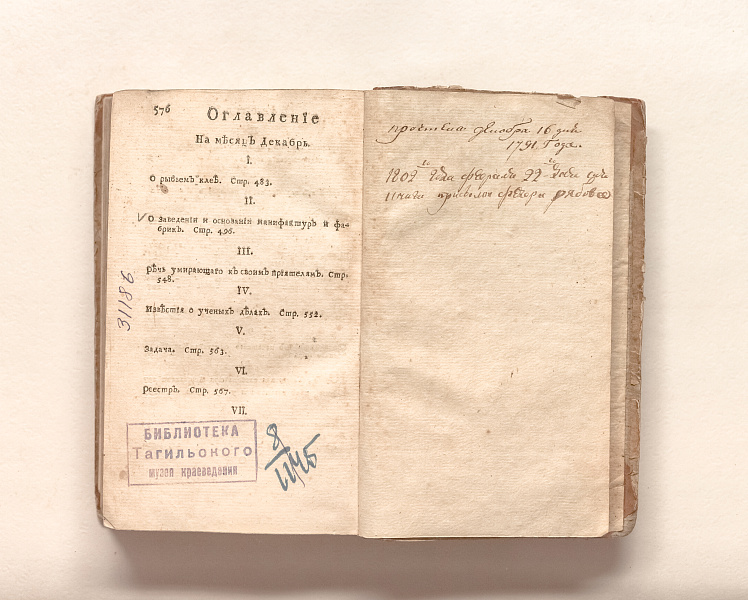 576
Оглавленїе
На мѣсяцъ Декабрь.
I.
О рыбьемъ клеѣ. Стр. 483.
II.
О заведенїи и основанїи манифактуръ и фа-
брик. Стр. 496.
III.
Рѣчь умирающаго къ своимъ прїятелямъ. Стр.
548.
IV.
Извѣстїя о ученыхъ дѣлахъ. Стр. 552.
V.
Задача. Стр. 563.
VI.
Реестръ. Стр. 567.
VII.
31186
БИБЛИОТЕКА
Тагильского
музея краеведения
8
декабря 16 дня
1791 Года.
1802 го Года февраля 22 го